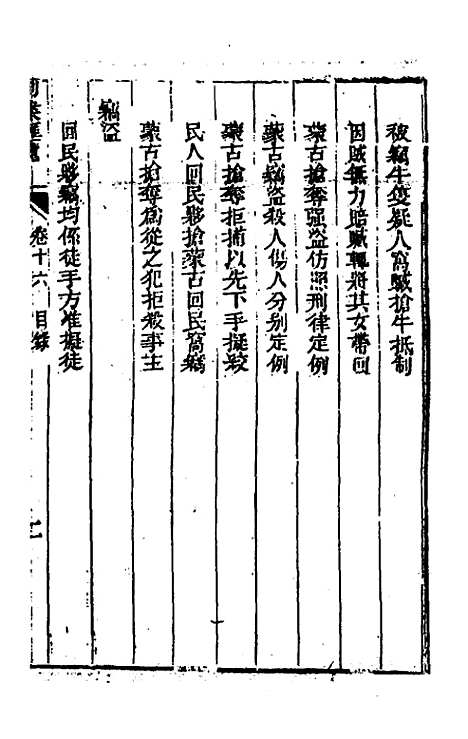 被竊牛隻疑人窩賊搶牛抵制
因賊無力賠贓輒將其女帶回
蒙古搶奪强盜仿照刑律定例
蒙古竊盜殺人傷人分别定例
蒙古搶奪拒捕以先下手擬絞
民人回民夥搶蒙古回民窩竊
蒙古搶奪為從之犯拒殺事主
竊盜
回民夥竊均係徒手方准擬徒
卷十六 目錄